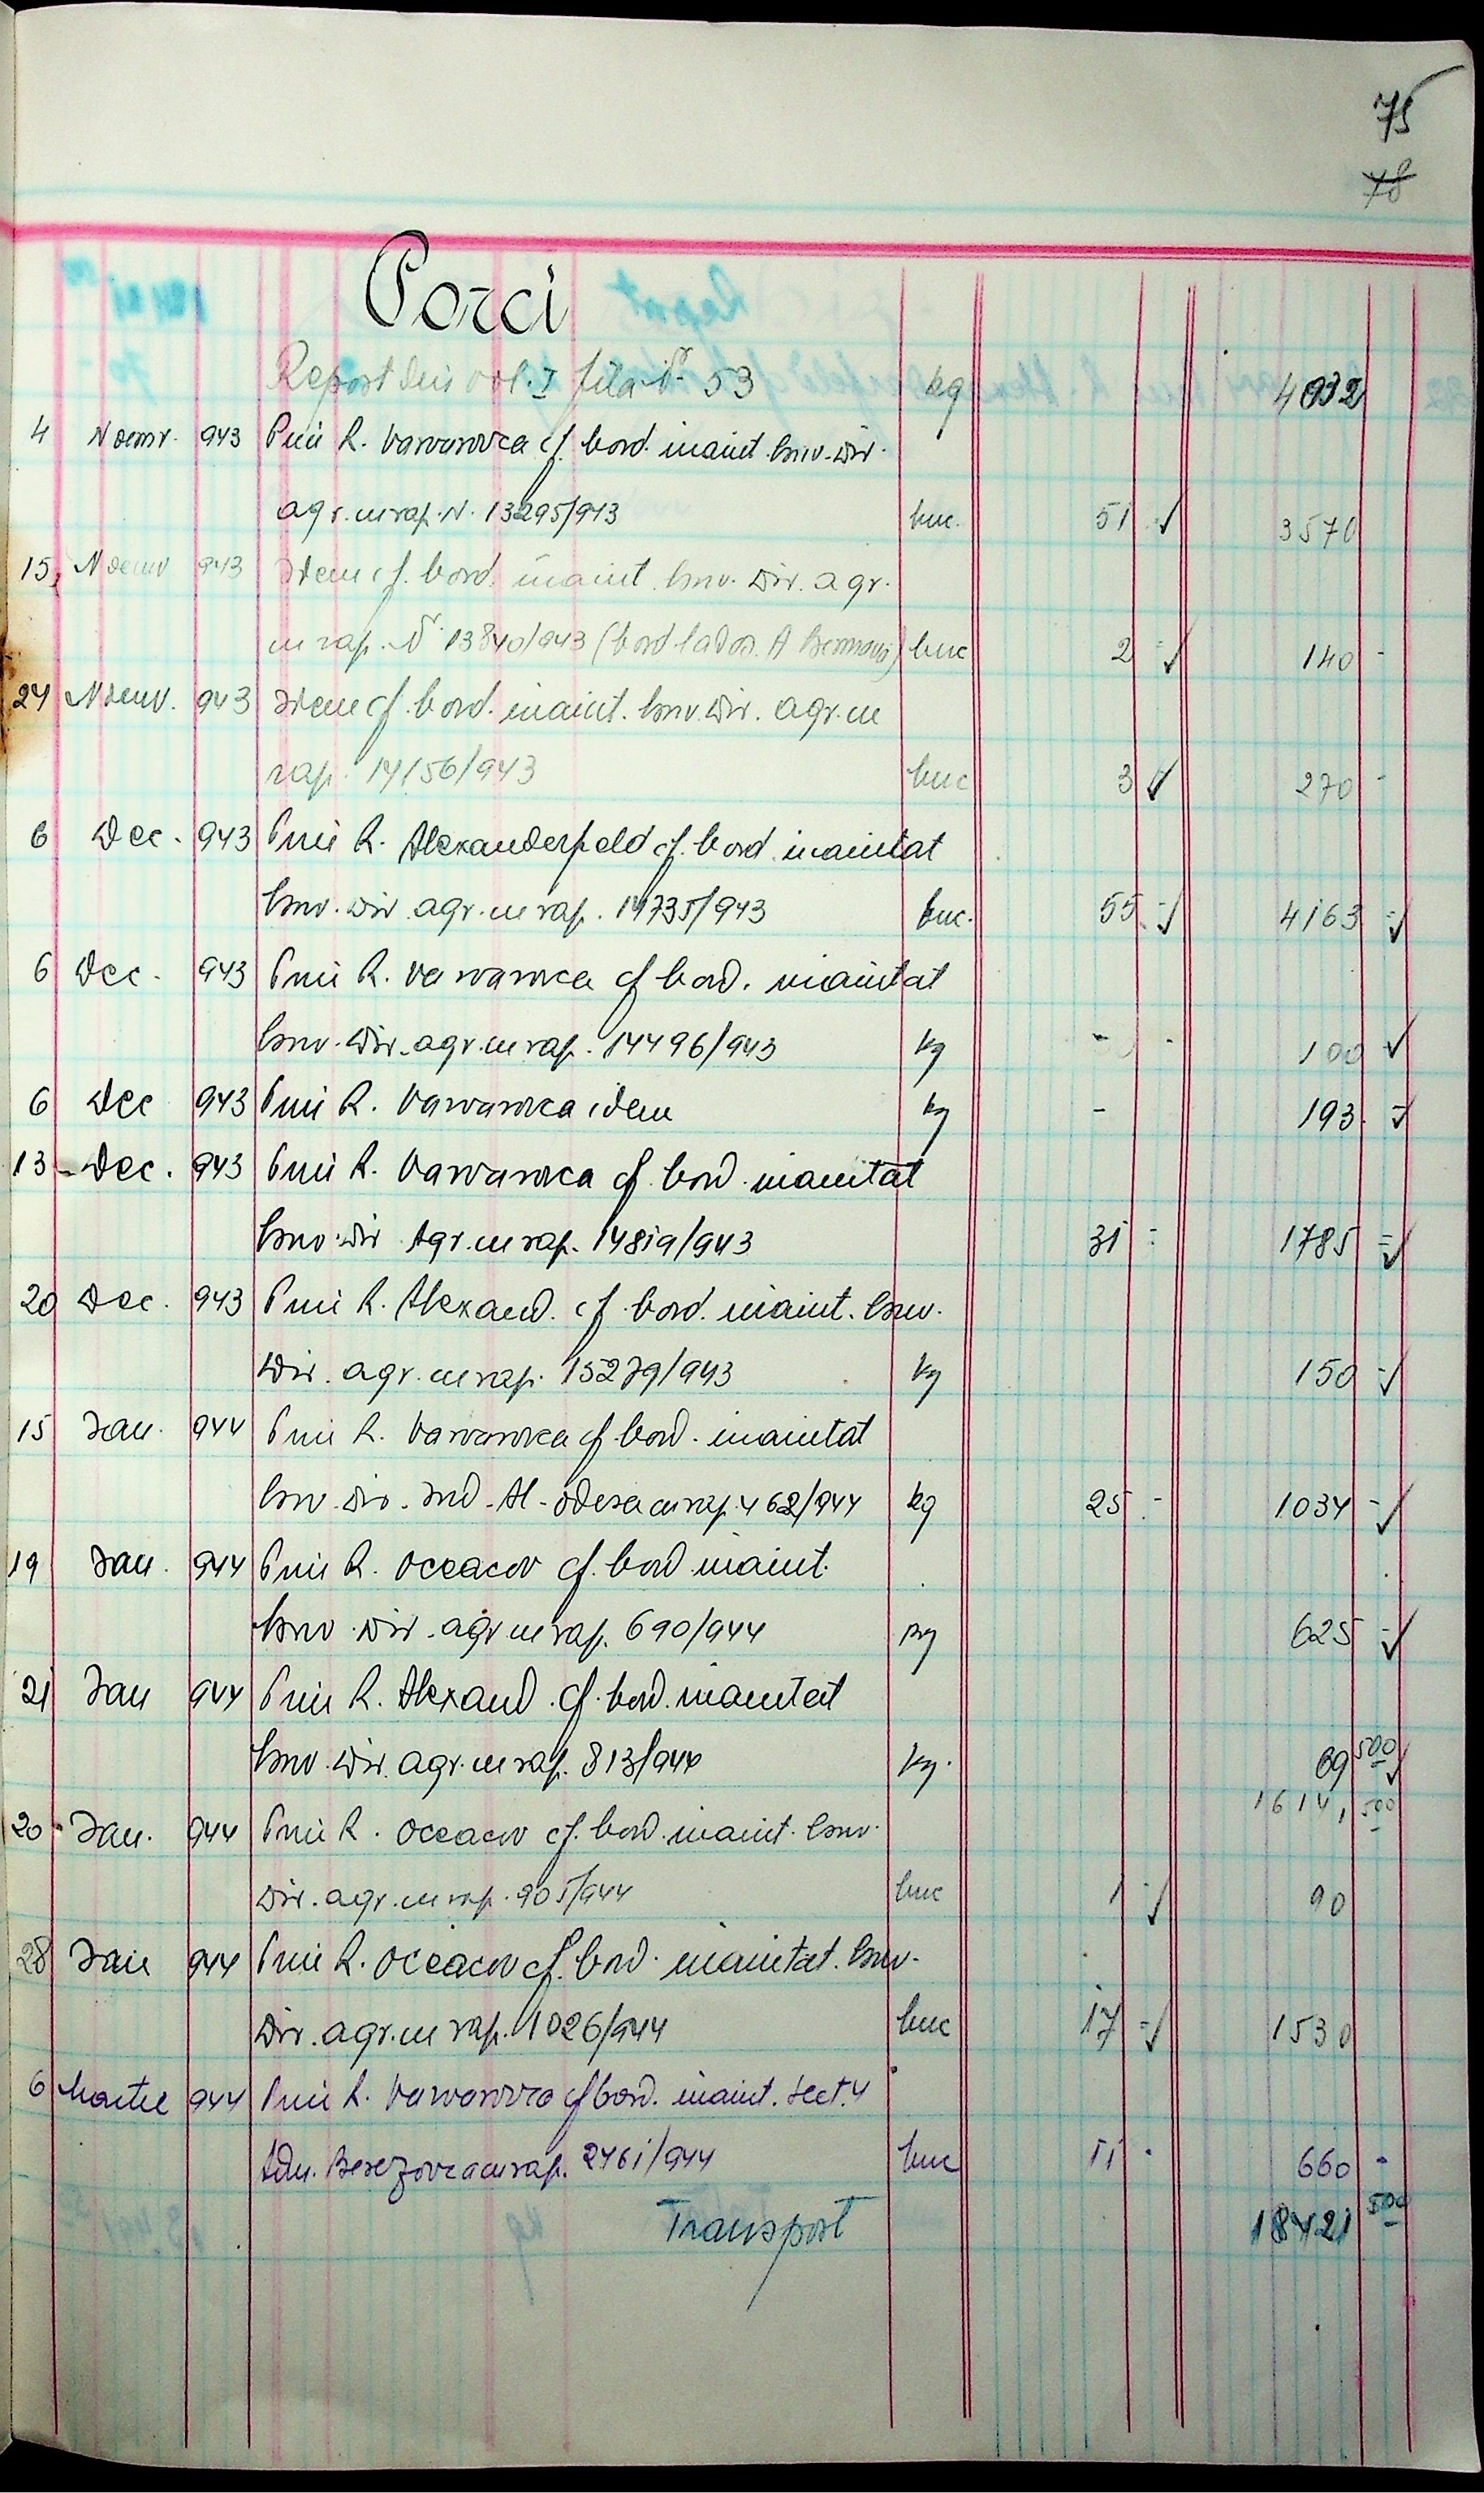 75
78
Porci
Report din vol. I fila No 53 kg 4032
4 Noemr. 943 Prin R. Varvarovca cf. bord. inaint. Dir.
agr. cu rap. N. 13295/943 buc. 51 3570
15 Noemv 943 Idem cf. bord. inaint. Dir. agr.
cu rap. No 13840/943 (bord buc 2 140 -
24 Noemv. 943 Idem cf. bord. inaint. Dir. agr. cu
rap. 14156/943 buc 3 270 -
6 Dec. 943 Prin R. Alexanderfeld cf. bord inaintat
Dir agr. cu rap. 14735/943 buc. 55 4163
6 Dec. 943 Prin R. Varvarovca cf bord. inaintat
Dir. agr. cu rap. 14496/943 kg - 100
6 Dec 943 Prin R. Varvarovca idem kg - 193
13 Dec. 943 Prin R. Varvarovca cf. bord. inaintat
Dir Agr. cu rap. 14819/943 31 1785
20 Dec. 943 Prin R. Alexand. cf. bord. inaint.
Dir. agr. cu rap. 15279/943 kg 150
15 Ian. 944 Prin R. Varvarovca cf bord. inaintat
Dir. Ind. Al. Odesa cu rap. 462/944 kg 25 - 1034
19 Ian. 944 Prin R. Oceacov cf. bord inaint.
Dir. agr cu rap. 690/944 kg 625
21 Ian 944 Prin R. Alexand. cf. bord. inaintat
Dir. agr. cu rap. 813/944 kg. 69 500
1614,500
20 Ian. 944 Prin R. Oceacov cf. bord. inaint.
Dir. agr. cu rap. 905/944 buc 1 90
28 Ian 944 Prin R. Oceacov cf. bord. inaintat.
Dir. agr. cu rap. 1026/944 buc 17 1530
6 Martie 944 Prin R. Varvarovca cf bord. inaint. Sect. 4
Adm. Berezovca cu rap. 2461/944 buc 11 660
Transport 18421 500